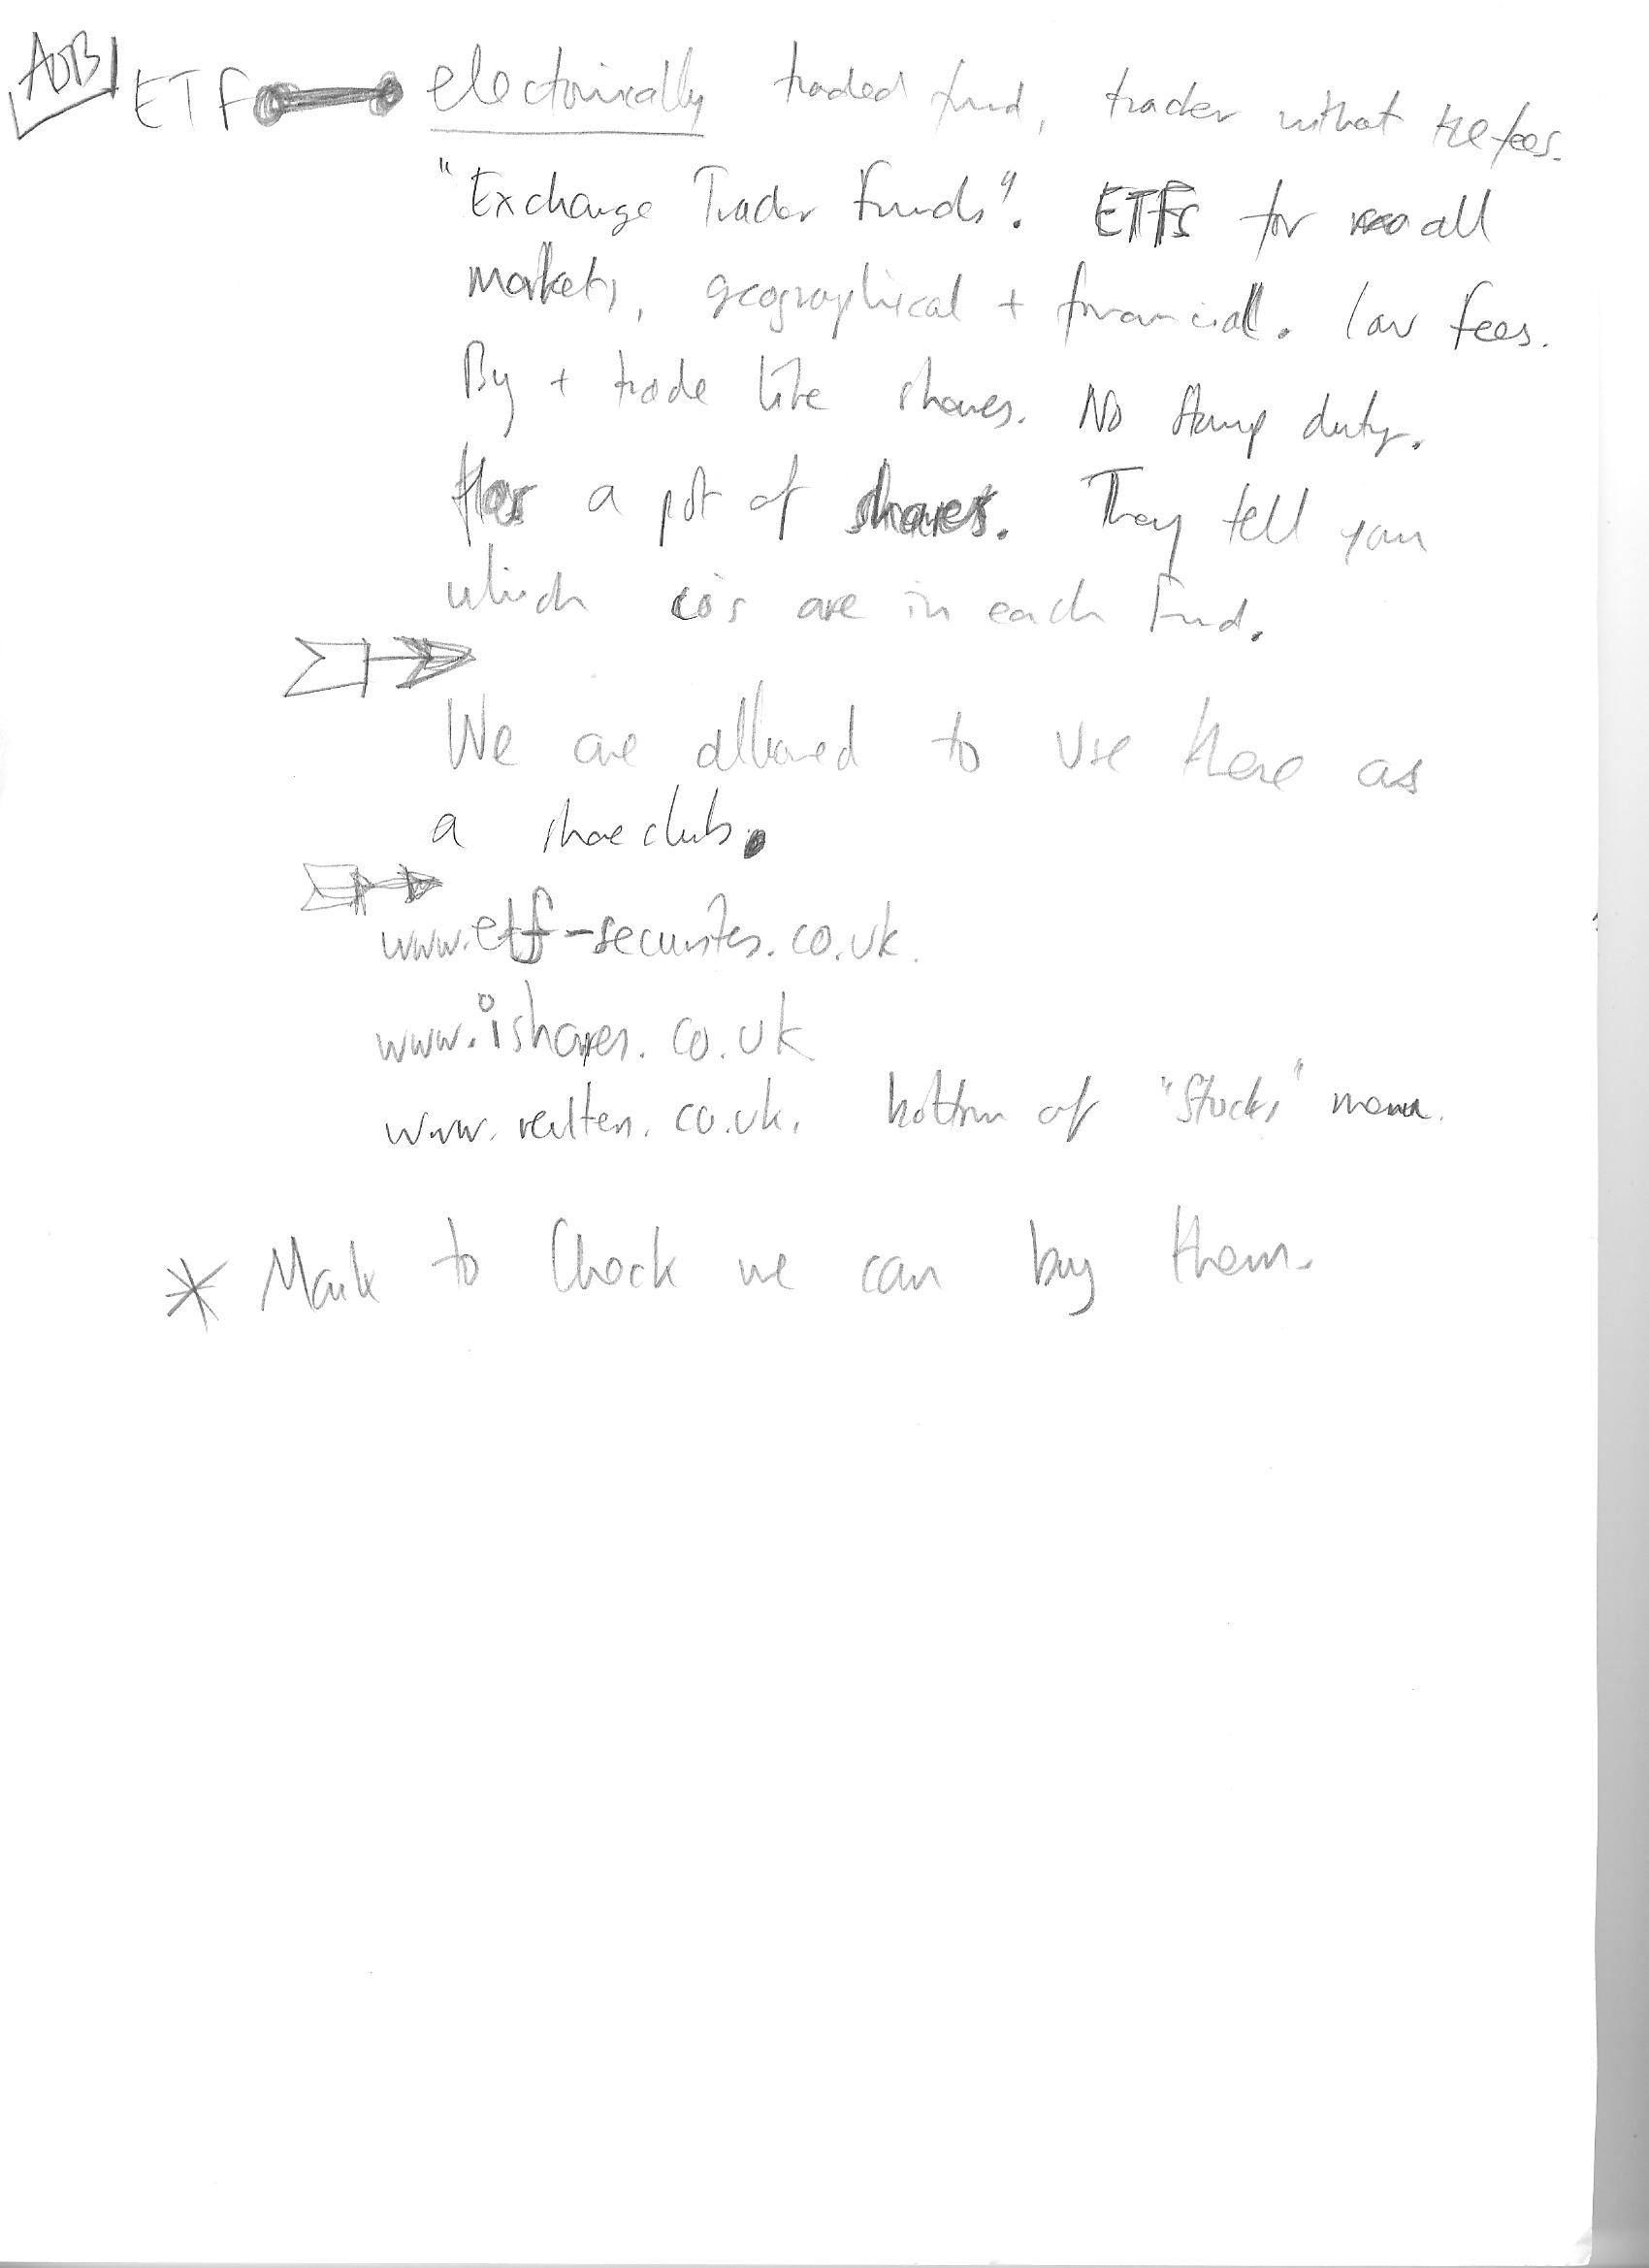 AOB ETF electronically traded fund, tracker without the fees.
"Exchange Trader Funds". ETFs for all
markets, geographical + financial. low fees.
By + trade like shares. No stamp duty.
Has a pot of shares. They tell you
which co's are in each fund.
We are allowed to use these as
a shareclub.
www.etf-securites.co.uk.
www.ishares.co.uk
www. .co.uk. bottom of "Stocks" menu.
* Mark to Check we can buy them.